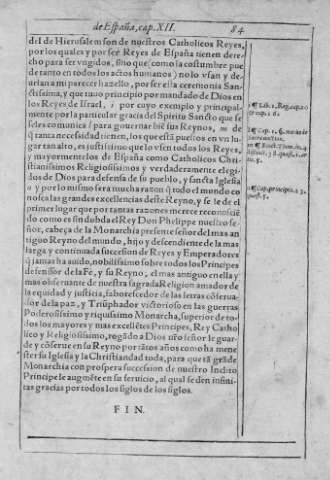 de España, cap. XII.
84
del de Hierusalem son de nuestros Catholicos Reyes,
por los quales y por ser Reyes de España tienen dere-
cho para ser vngidos, sino que (como la costumbre pue
de tanto en todos los actos humanos) no lo vsan y de-
sta ceremonia Sanc-
tissima, y que tuuo principio por mandado de Dios en
los Reyes de Israel, i por cuyo exemplo y principal-
mente por la particular gracia del Spiritu Sancto que se
les comunica para gouernar biē sus Reynos, de
q̃ tanta necessidad tienen, los que está puestos en vn lu
gar tan alto, es justissimo que lo vsen todos los Reyes,
y mayormente los de España como Catholicos Chri-
stianissimos Religiosissimos y verdaderamente elegi-
dos de Dios para defensa de su pueblo, y sancta Iglesia
o y por lo mismo sera mucha razon q̃ todo el mundo co
nozca las grandes excellencias deste Reyno, y se le de el
primer lugar que por tantas razones merece reconoscié
do como es sin duda el Rey Don Phelippe nuestro se-
ñor, cabeça de la Monarchia presente señor del mas an
tiguo Reyno del mundo, hijo y descendiente de la mas
larga y continuada succession de Reyes y Emperadores
q̃ jamas ha auido, nobilissimo sobre todos los Principes
defensor de la Fe, y su Reyno, el mas antiguo en ella y
mas obseruante de nuestra sagrada Religion amador de
la equidad y justicia, fauorescedor de las letras cōserua-
dor de la paz, y Triūphador victorioso en las guerras
Poderosissimo y riquissimo Monarcha, superior de to-
dos los mayores y mas excellētes Principes, Rey Catho
lico y Religiosissimo, rogādo a Dios nr̄o señor le guar-
de y cōserue en su Reyno por tātos años como ha mene
ster su Iglesia y la Christiandad toda, para que tā grāde
Monarchia con prospera succession de nuestro Inclito
Principe le augmēte en su seruicio, al qual se den infini-
tas gracias por todos los siglos de los siglos.
FIN.